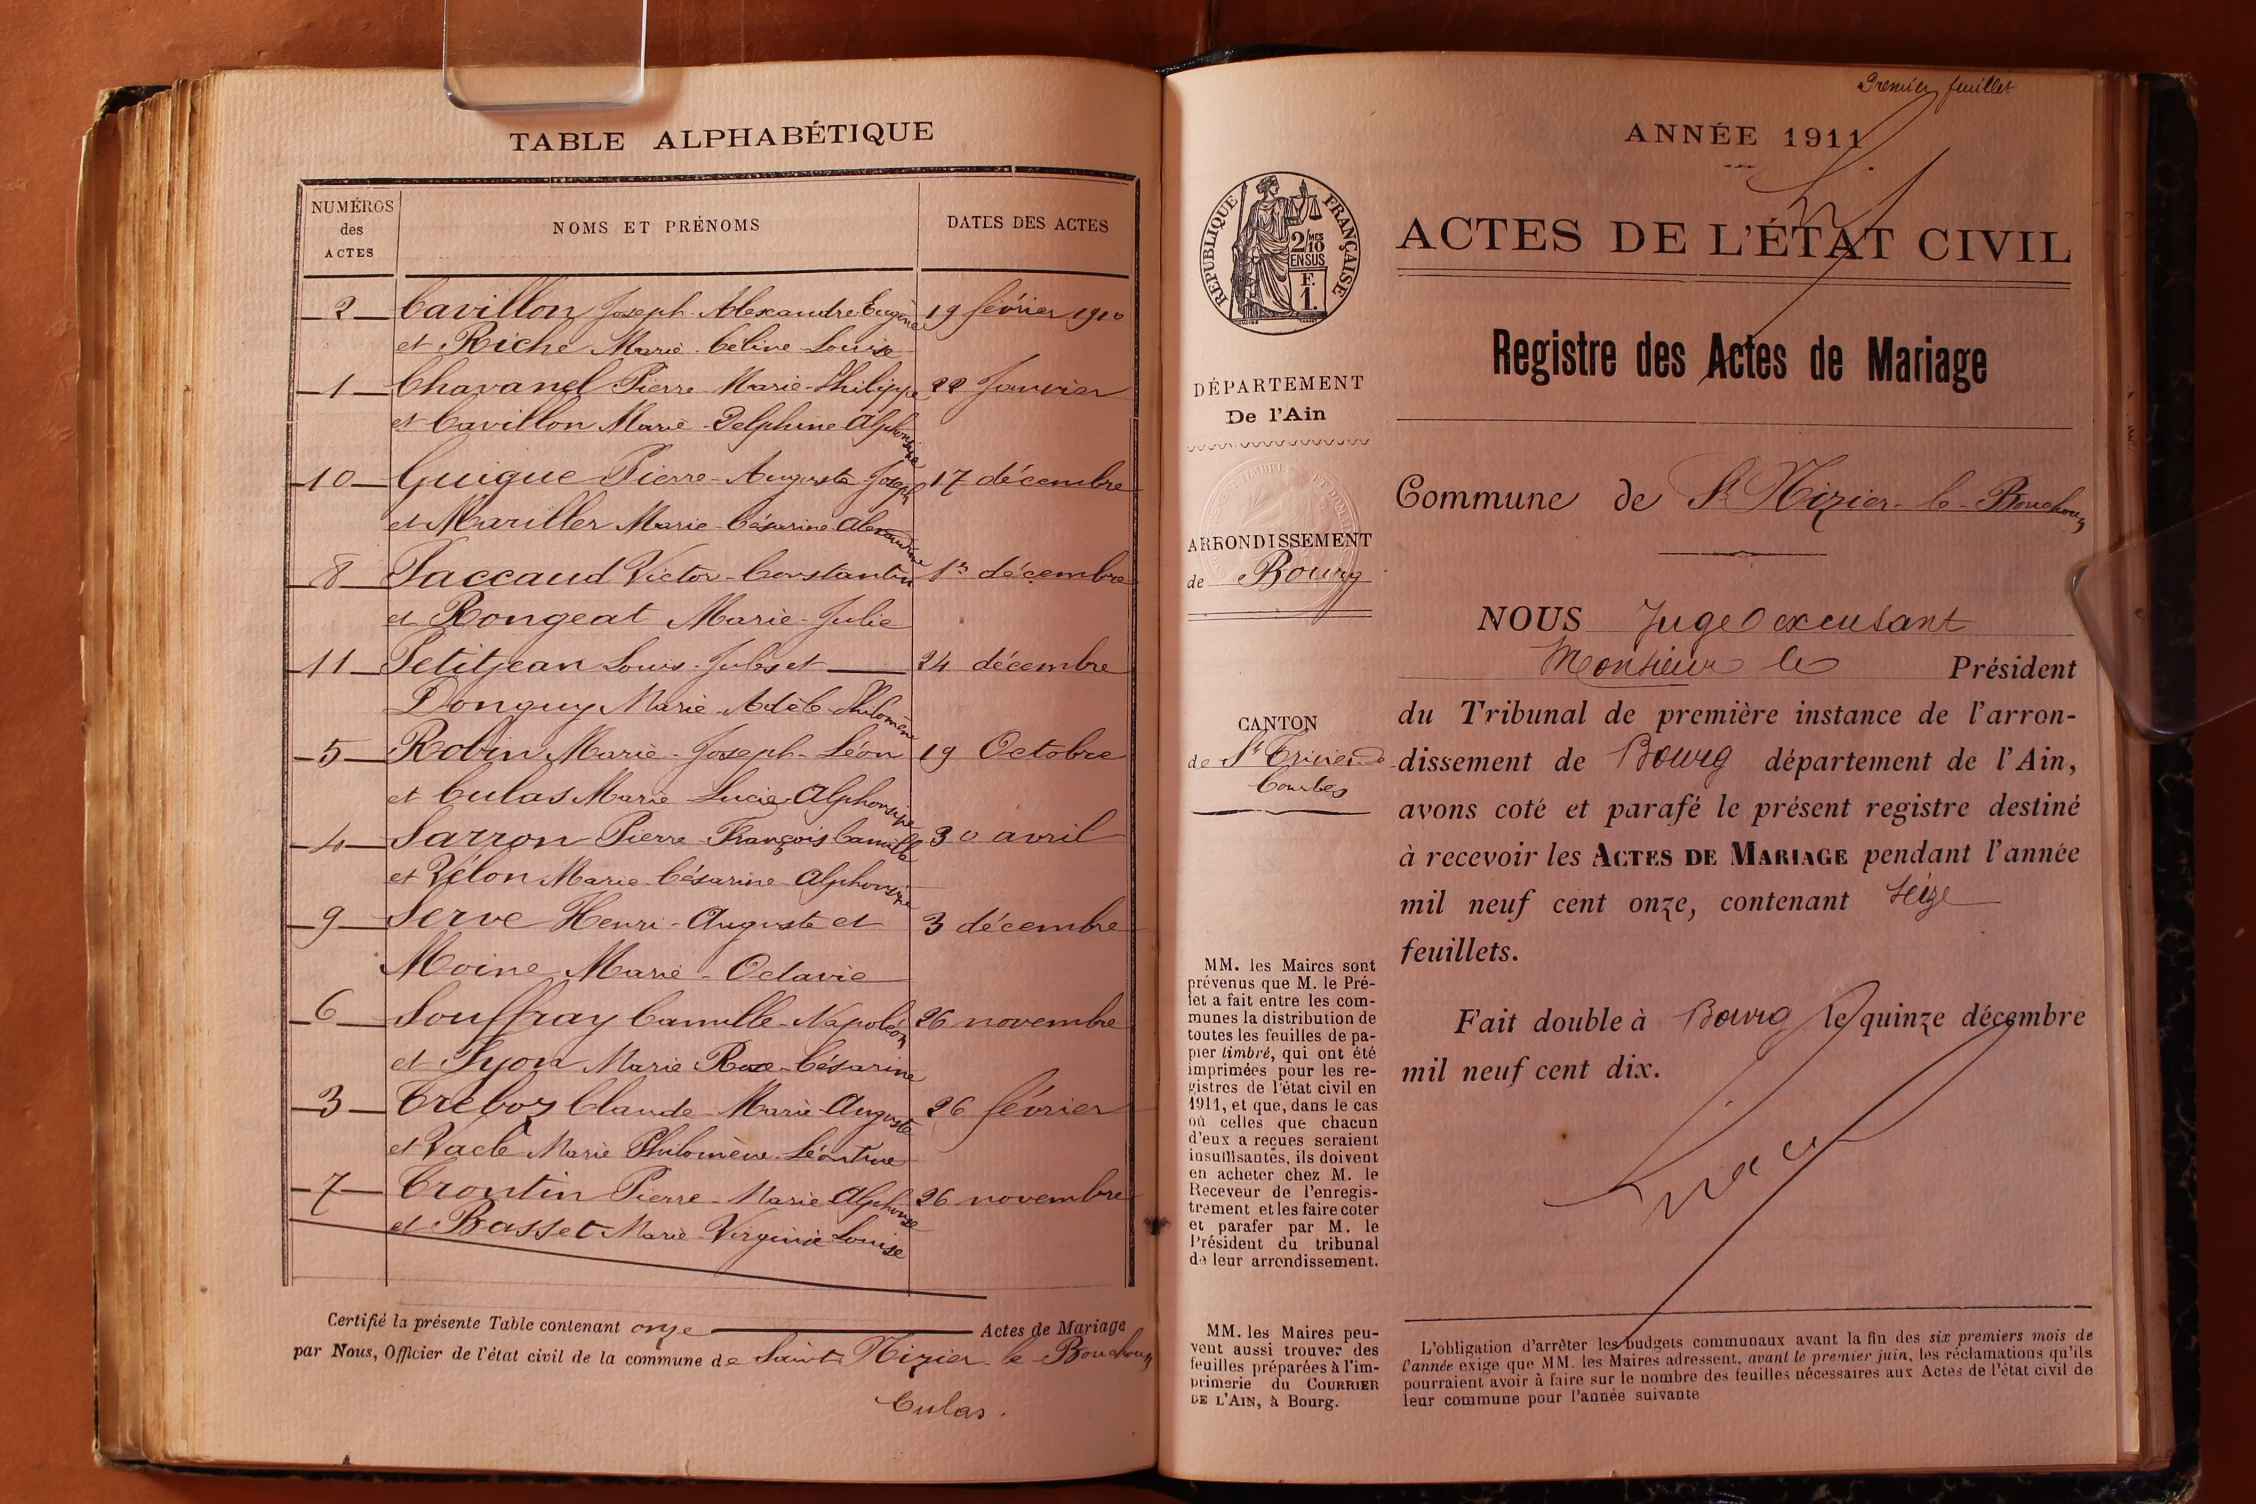 TABLE ALPHABÉTIQUE
NUMÉROS
des
ACTES
NOMS ET PRÉNOMS
DATES DES ACTES
2 Cavillon Joseph Alexandre Eugène 19 février 1910
et Riche Marie Céline Louise
1 Chavanel Pierre Marie-Philippe 22 Janvier
et Cavillon Marie Delphine Alphonsine
10 Guigue Pierre Auguste Joseph 17 décembre
et Mariller Marie Césarine Alexandrine
8 Paccaud Victor Constantin 1er décembre
et Rongeat Marie Julie
11 Petitjean Louis Jules et 24 décembre
Donguy Marie Adèle Philomène
5 Robin Marie Joseph Léon 19 Octobre
et Culas Marie Lucie Alphonsine
4 Sarron Pierre François Camille 30 avril
et Vélon Marie Césarine Alphonsine
9 Serve Henri Auguste et 3 décembre
Moine Marie Octavie
6 Souffray Camille Napoléon 26 novembre
et Lyon Marie Rose Césarine
3 Treboz Claude Marie Auguste 26 février
et Vacle Marie Philomène Léontine
7 Trontin Pierre Marie Alphonse 26 novembre
et Basset Marie Virginie Louise
Certifié la présente Table contenant onze Actes de Mariage
par Nous, Officier de l'état civil de la commune de Saint Nizier le Bouchoux
Culas.
Premier feuillet
ANNÉE 1911
RÉPUBLIQUE FRANÇAISE
2/10 MES
EN SUS
F.
1.
ACTES DE L'ÉTAT CIVIL
Registre des Actes de Mariage
DÉPARTEMENT
De l'Ain
ARRONDISSEMENT
de Bourg
CANTON
de St Trivier de
Courtes
Commune de St Nizier-le-Bouchoux
NOUS Juge excusant
Monsieur le Président
du Tribunal de première instance de l'arron-
dissement de Bourg département de l'Ain,
avons coté et parafé le présent registre destiné
à recevoir les ACTES DE MARIAGE pendant l'année
mil neuf cent onze, contenant seize
feuillets.
Fait double à Bourg le quinze décembre
mil neuf cent dix.
MM. les Maires sont
prévenus que M. le Pré-
fet a fait entre les com-
munes la distribution de
toutes les feuilles de pa-
pier timbré, qui ont été
imprimées pour les re-
gistres de l'état civil en
1911, et que, dans le cas
où celles que chacun
d'eux a reçues seraient
insuffisantes, ils doivent
en acheter chez M. le
Receveur de l'enregis-
trement et les faire coter
et parafer par M. le
Président du tribunal
de leur arrondissement.
MM. les Maires peu-
vent aussi trouver des
feuilles préparées à l'im-
primerie du COURRIER
DE L'AIN, à Bourg.
L'obligation d'arrêter les budgets communaux avant la fin des six premiers mois de
l'année exige que MM. les Maires adressent, avant le premier juin, les réclamations qu'ils
pourraient avoir à faire sur le nombre des feuilles nécessaires aux Actes de l'état civil de
leur commune pour l'année suivante